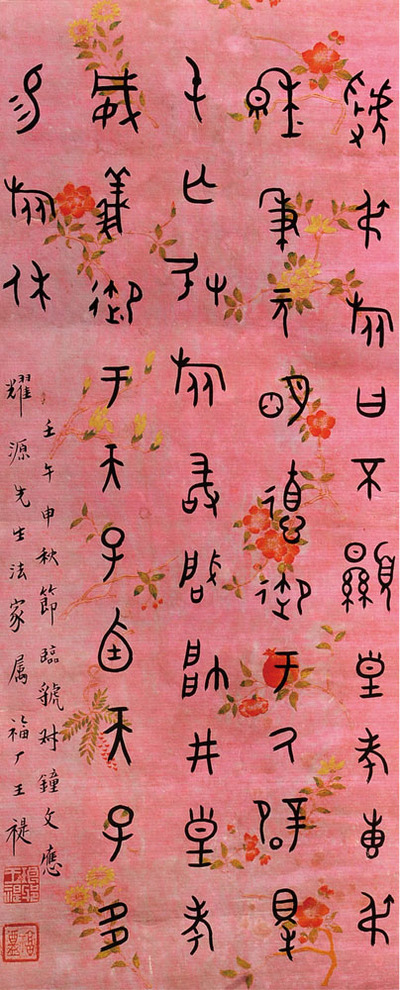 虢叔旅曰不顯皇考叀叔
穆秉元明德御于厥辟得
屯亡敃旅敢啟帥井皇考
威義御于天子卣天子多
易旅休
壬午中秋節臨虢叔鐘文應
耀源先生法家属 福厂王禔